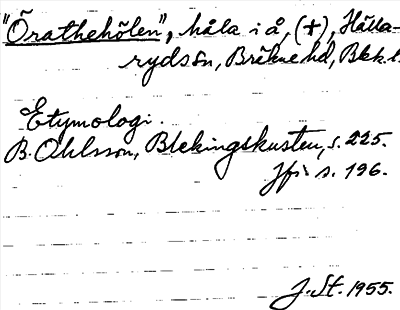 "Örathehölen", håla i å, (+), Hälla-
rydssn, Bräkne hd, Blek.l.
Etymologi.
B. Ohlsson, Blekingskusten, s. 225.
Jfr s. 196.
J. St. 1955.